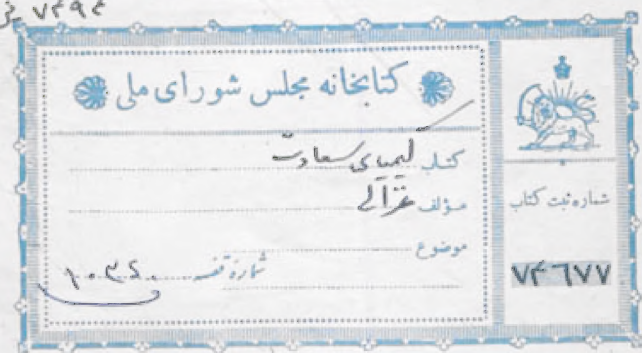 ۷۴۹۴
کتابخانه مجلس شورای ملی
کتاب کیمیای سعادت
مؤلف غزالی
موضوع
شماره قفسه
شماره ثبت کتاب
۷۴۶۷۷